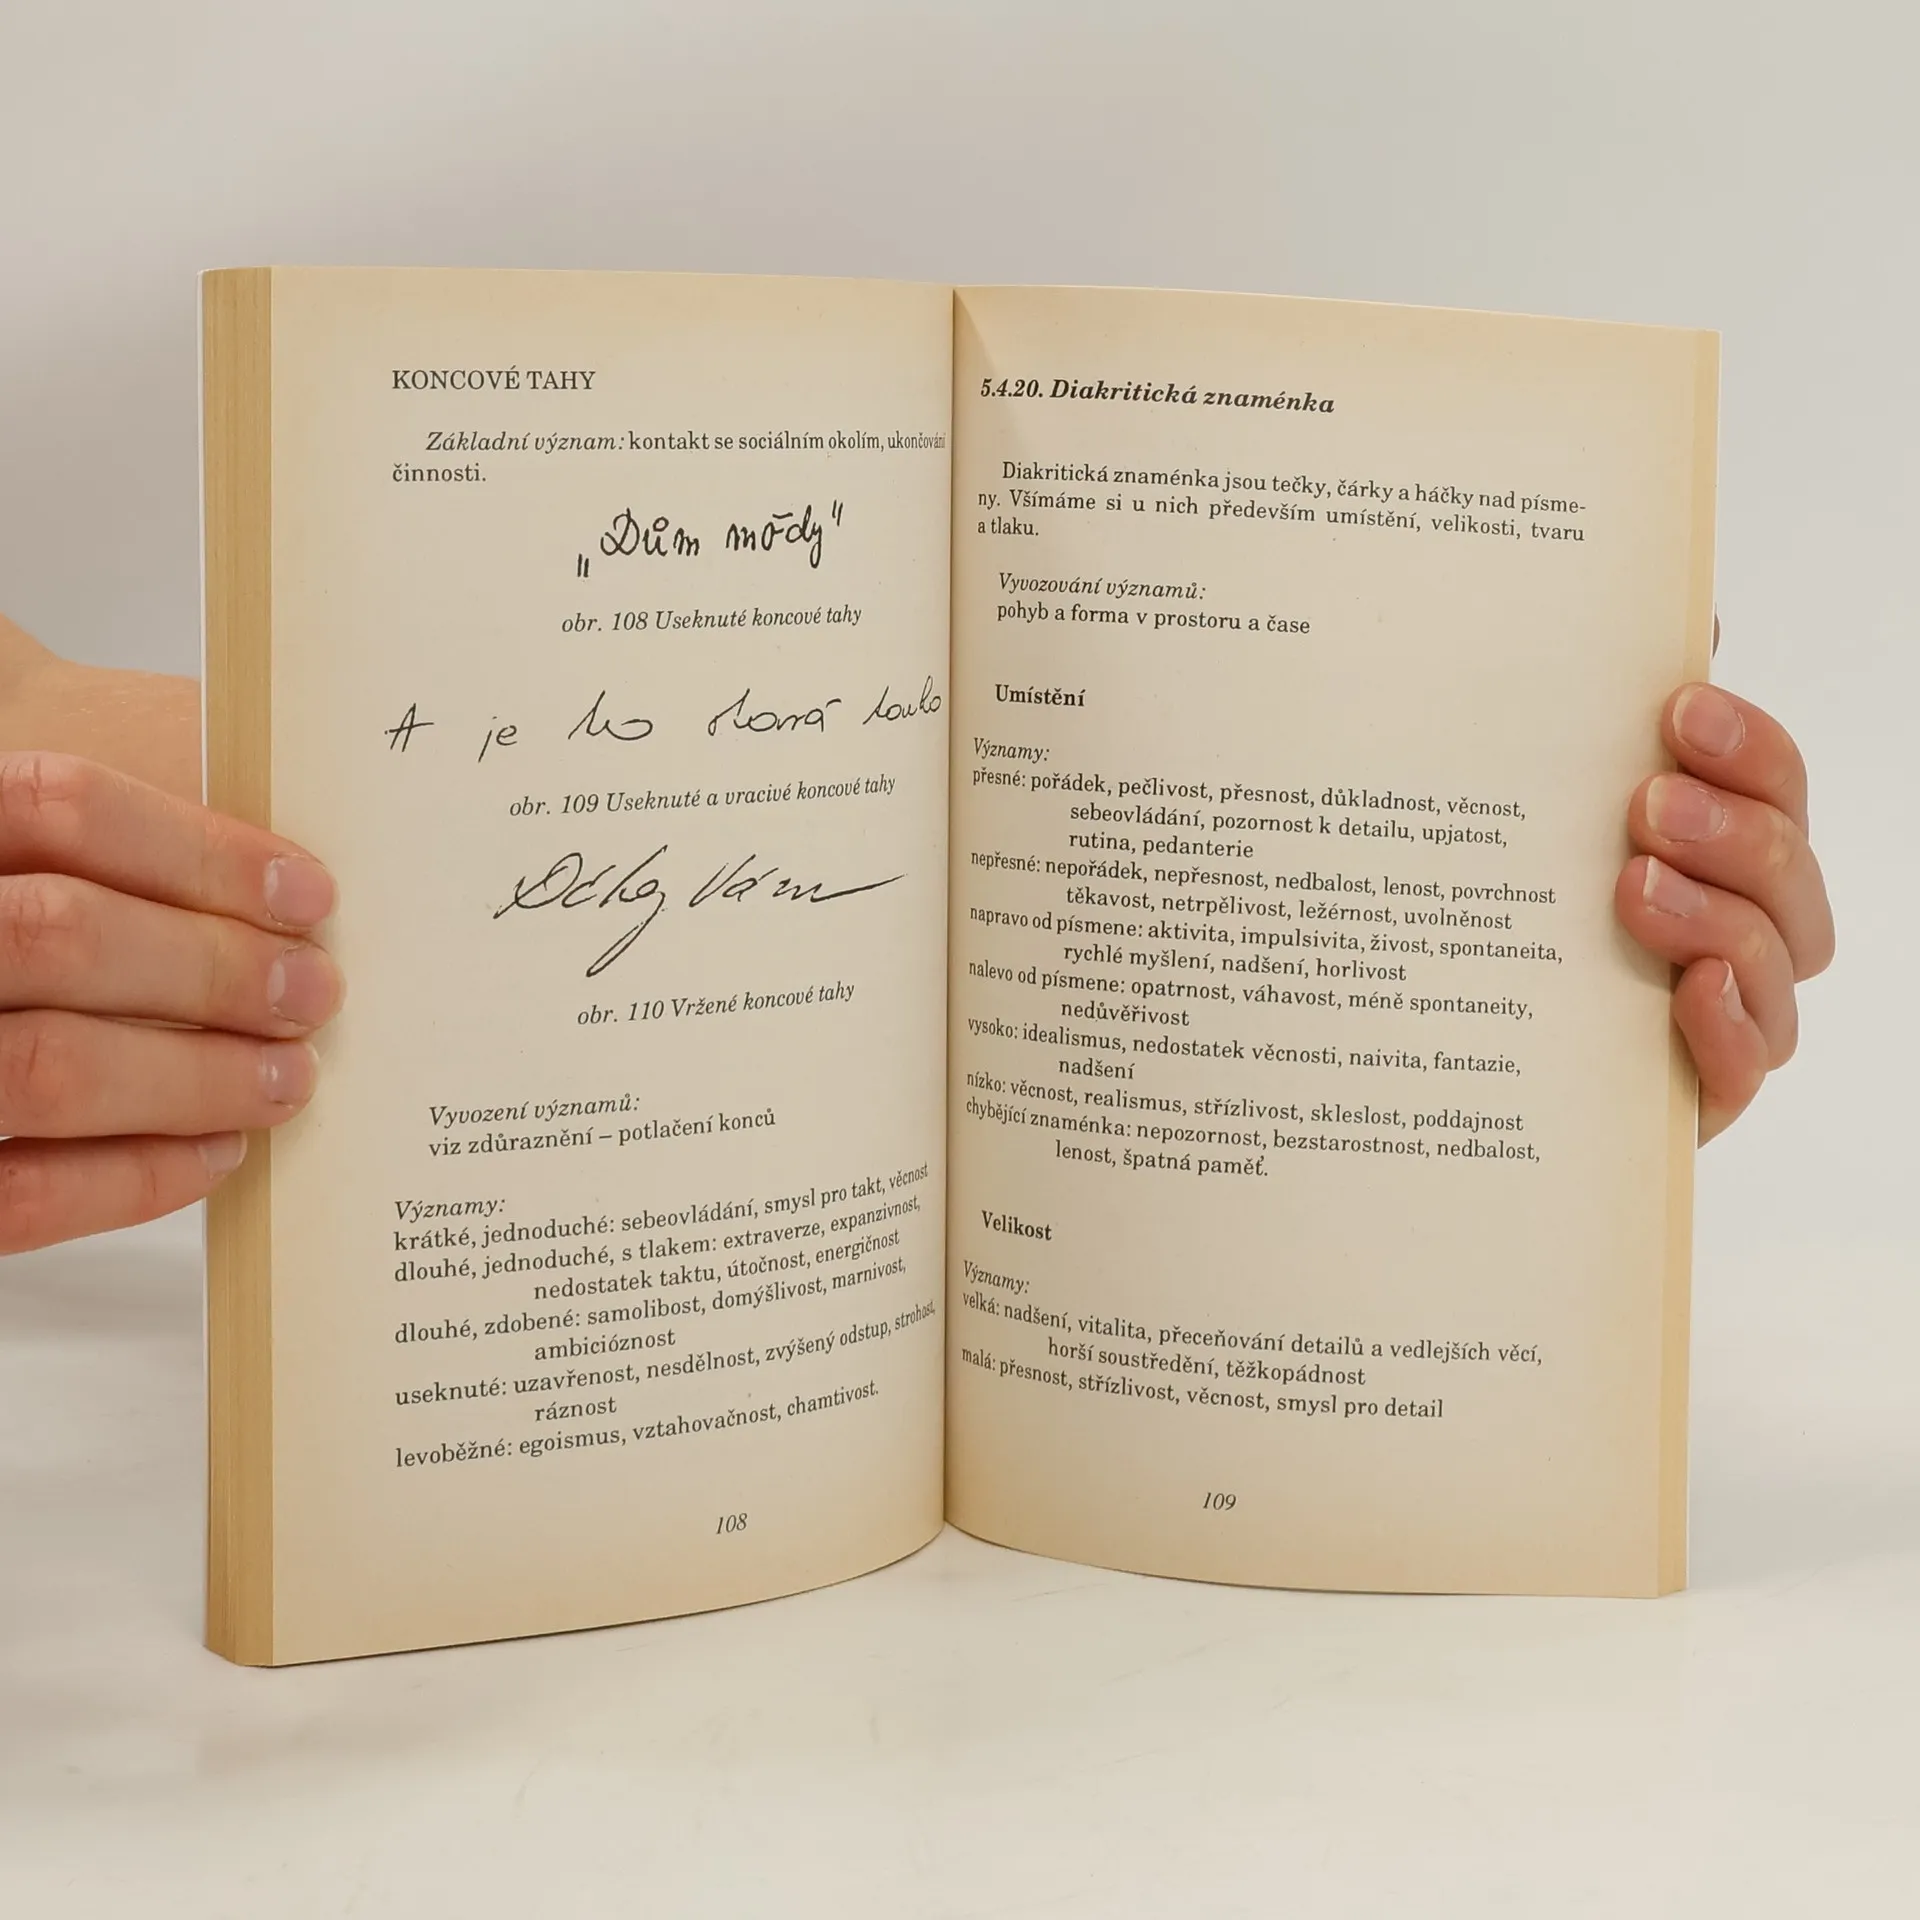 KONCOVÉ TAHY
Základní význam: kontakt se sociálním okolím, ukončování
činnosti.
„Dům módy"
obr. 108 Useknuté koncové tahy
A je to stará touha
obr. 109 Useknuté a vracivé koncové tahy
Vám
obr. 110 Vržené koncové tahy
Vyvození významů:
viz zdůraznění – potlačení konců
Významy:
krátké, jednoduché: sebeovládání, smysl pro takt, věcnost
dlouhé, jednoduché, s tlakem: extraverze, expanzivnost,
nedostatek taktu, útočnost, energičnost
dlouhé, zdobené: samolibost, domýšlivost, marnivost,
ambicióznost
useknuté: uzavřenost, nesdělnost, zvýšený odstup, strohost,
ráznost
levoběžné: egoismus, vztahovačnost, chamtivost.
108
5.4.20. Diakritická znaménka
Diakritická znaménka jsou tečky, čárky a háčky nad písme-
ny. Všímáme si u nich především umístění, velikosti, tvaru
a tlaku.
Vyvozování významů:
pohyb a forma v prostoru a čase
Umístění
Významy:
přesné: pořádek, pečlivost, přesnost, důkladnost, věcnost,
sebeovládání, pozornost k detailu, upjatost,
rutina, pedanterie
nepřesné: nepořádek, nepřesnost, nedbalost, lenost, povrchnost
těkavost, netrpělivost, ležérnost, uvolněnost
napravo od písmene: aktivita, impulsivita, živost, spontaneita,
rychlé myšlení, nadšení, horlivost
nalevo od písmene: opatrnost, váhavost, méně spontaneity,
nedůvěřivost
vysoko: idealismus, nedostatek věcnosti, naivita, fantazie,
nadšení
nízko: věcnost, realismus, střízlivost, skleslost, poddajnost
chybějící znaménka: nepozornost, bezstarostnost, nedbalost,
lenost, špatná paměť.
Velikost
Významy:
velká: nadšení, vitalita, přeceňování detailů a vedlejších věcí,
horší soustředění, těžkopádnost
malá: přesnost, střízlivost, věcnost, smysl pro detail
109